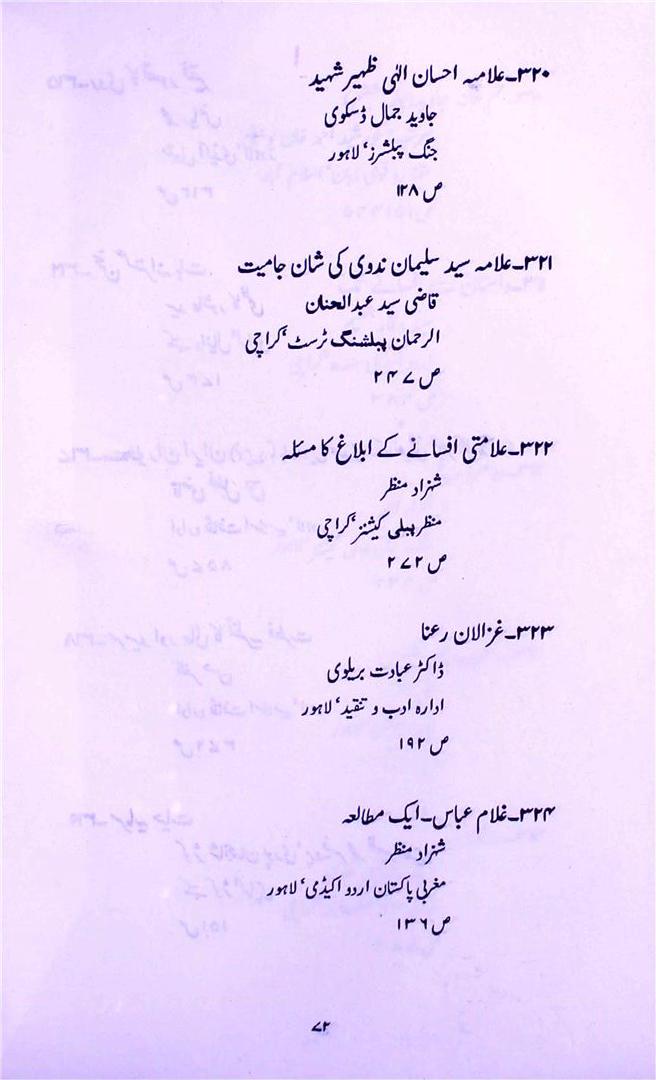 ۳۲۰۔علامہ احسان الٰہی ظہیر شہید
جاوید جمال ڈسکوی
جنگ پبلشرز، لاہور
ص ۱۲۸
۳۲۱۔علامہ سید سلیمان ندوی کی شان جامیت
قاضی سید عبدالحنان
الرحمان پبلشنگ ٹرسٹ، کراچی
ص ۲۴۷
۳۲۲۔علامتی افسانے کے ابلاغ کا مسئلہ
شہزاد منظر
منظر پبلی کیشنز، کراچی
ص ۲۷۲
۳۲۳۔غزالان رعنا
ڈاکٹر عبادت بریلوی
ادارہ ادب و تنقید، لاہور
ص ۱۹۲
۳۲۴۔غلام عباس۔ایک مطالعہ
شہزاد منظر
مغربی پاکستان اردو اکیڈمی، لاہور
ص ۱۳۶
۷۲